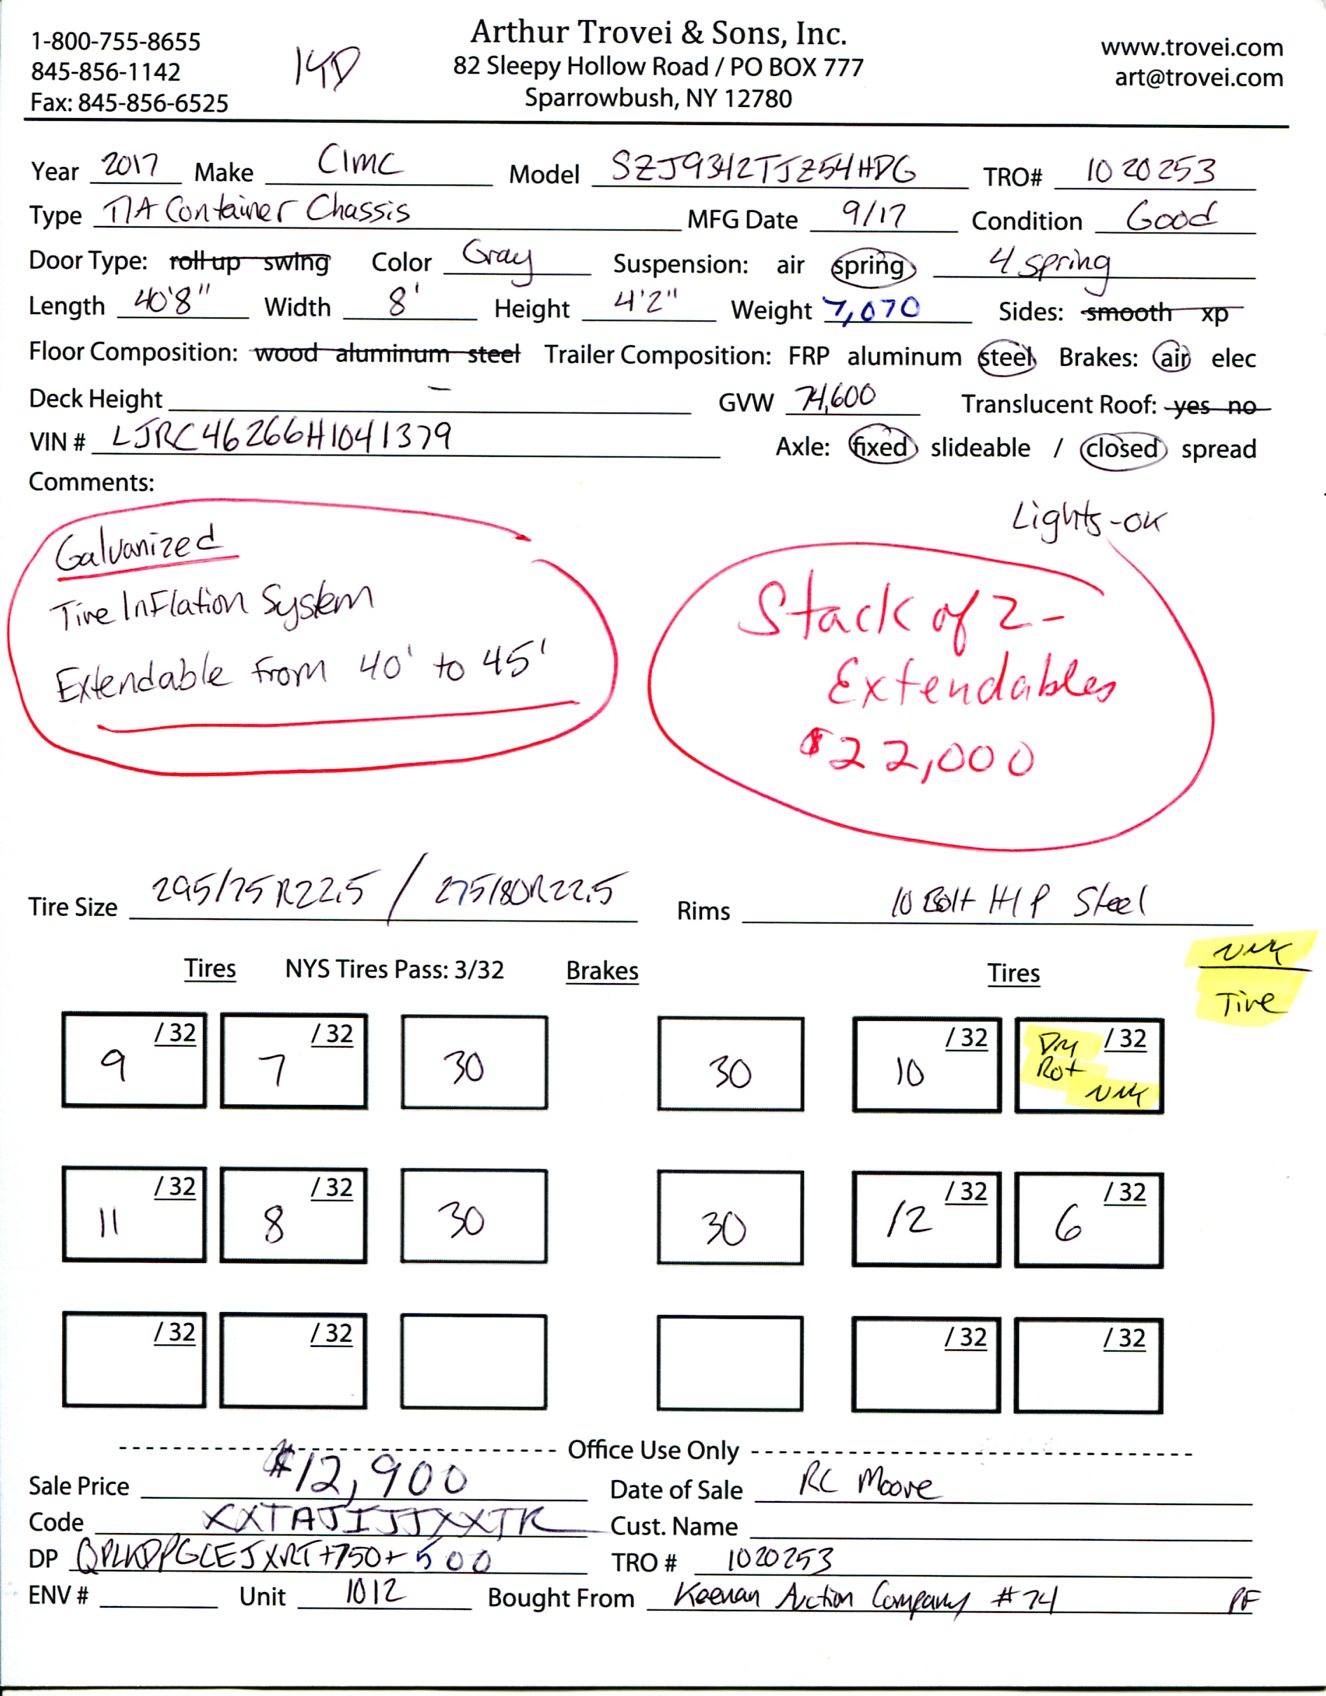 1-800-755-8655
845-856-1142
Fax: 845-856-6525
Arthur Trovei & Sons, Inc.
82 Sleepy Hollow Road / PO BOX 777
Sparrowbush, NY 12780
www.trovei.com
art@trovei.com
Year 2017 Make CIMC Model SZJ9342TJZ54HDG TRO# 1020253
Type T/A Container Chassis MFG Date 9/17 Condition Good
Door Type: roll up swing Color Gray Suspension: air spring 4 spring
Length 40'8" Width 8' Height 4'2" Weight 7,070 Sides: smooth xp
Floor Composition: wood aluminum steel Trailer Composition: FRP aluminum steel Brakes: air elec
Deck Height – GVW 74,600 Translucent Roof: yes no
VIN # LJRC46266H1041379 Axle: fixed slideable / closed spread
Comments:
Lights-OK
Galvanized
Tire Inflation System
Extendable From 40' to 45'
Stack of 2 -
Extendables
$22,000
Tire Size 295/75R22.5 / 275/80R22.5 Rims 10 Bolt H/P Steel
Tires NYS Tires Pass: 3/32 Brakes Tires
Tire
9 /32 7 /32 30 30 10 /32 Dry Rot /32
11 /32 8 /32 30 30 12 /32 6 /32
/32 /32 /32 /32
Office Use Only
Sale Price $12,900 Date of Sale RC Moore
Code XXTAJIJJXXTR Cust. Name
DP +750+500 TRO # 1020253
ENV # Unit 1012 Bought From Keenan Auction Company #74 PF